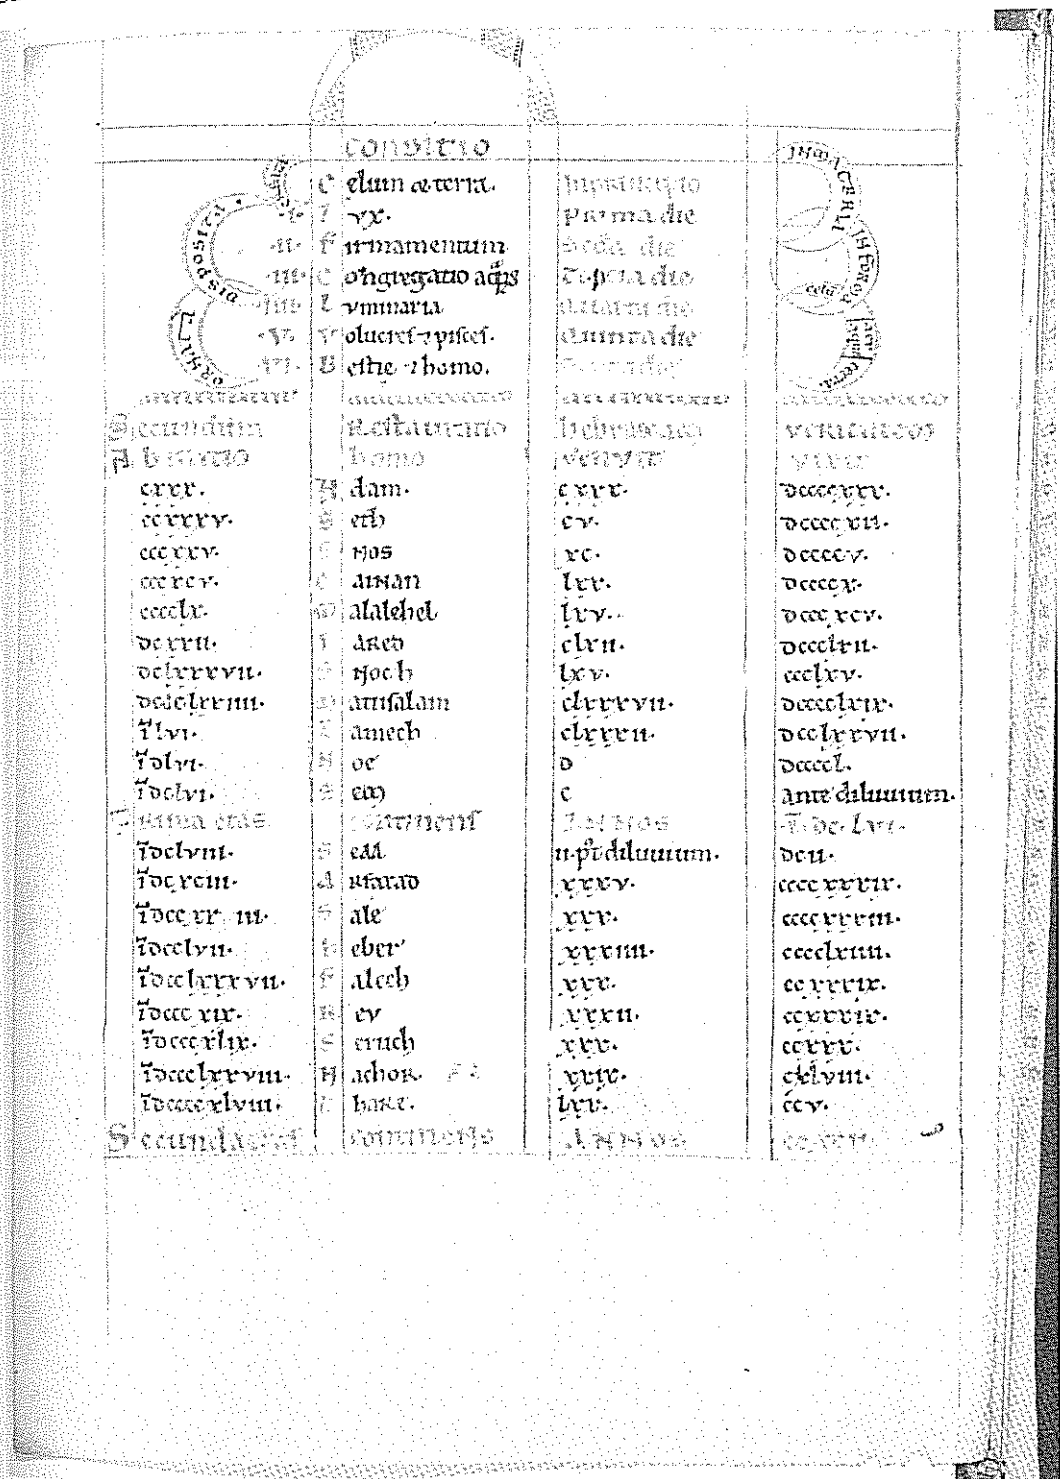 CONDITIO
Celum & terra. In principio
.i. Lvx. Prima die
.ii. Firmamentum Scđa die
.iii. Congregatio aq̄rū Tercia die
.iiii. Lvminaria Quarta die
.v. Volucres ⁊ pisces. Quinta die
.vi. Bestię ⁊ homo. Sexta die
DISPOSITA
ORNATA
Secundum Restauratio hebraicam veritatem
Ab initio homo
cxxx. Adam. cxxx. dccccxxx.
ccxxxv. Seth cv. dccccxii.
cccxxv. Enos xc. dccccv.
cccxcv. Cainan lxx. dccccx.
cccclx. Malalehel lxv. dcccxcv.
dcxxii. Iared clxii. dcccclxii.
dclxxxvii. Enoch lxv. ccclxv.
dccclxxiiii. Matusalam clxxxvii. dcccclxix.
īlvi. Lamech clxxxii. dcclxxvii.
īdlvi. Noe d dccccl.
īdclvi. Sem c ante diluuium.
Prima etas continens annos .ī.dc.lvi.
īdclviii. Sem ii. p̄t diluuium. dcii.
īdcxciii. Arfaxad xxxv. ccccxxxix.
īdccxx iii. Sale xxx. ccccxxxiii.
īdcclvii. Heber xxxiiii. cccclxiiii.
īdcclxxxvii. Falech xxx. ccxxxix.
īdcccxix. Rev xxxii. ccxxxix.
īdcccxlix. Seruch xxx. ccxxx.
īdccclxxviii. Nachor. xxix. cxlviii.
īdccccxlviii. Thare. lxx. ccv.
Secunda etas continens annos